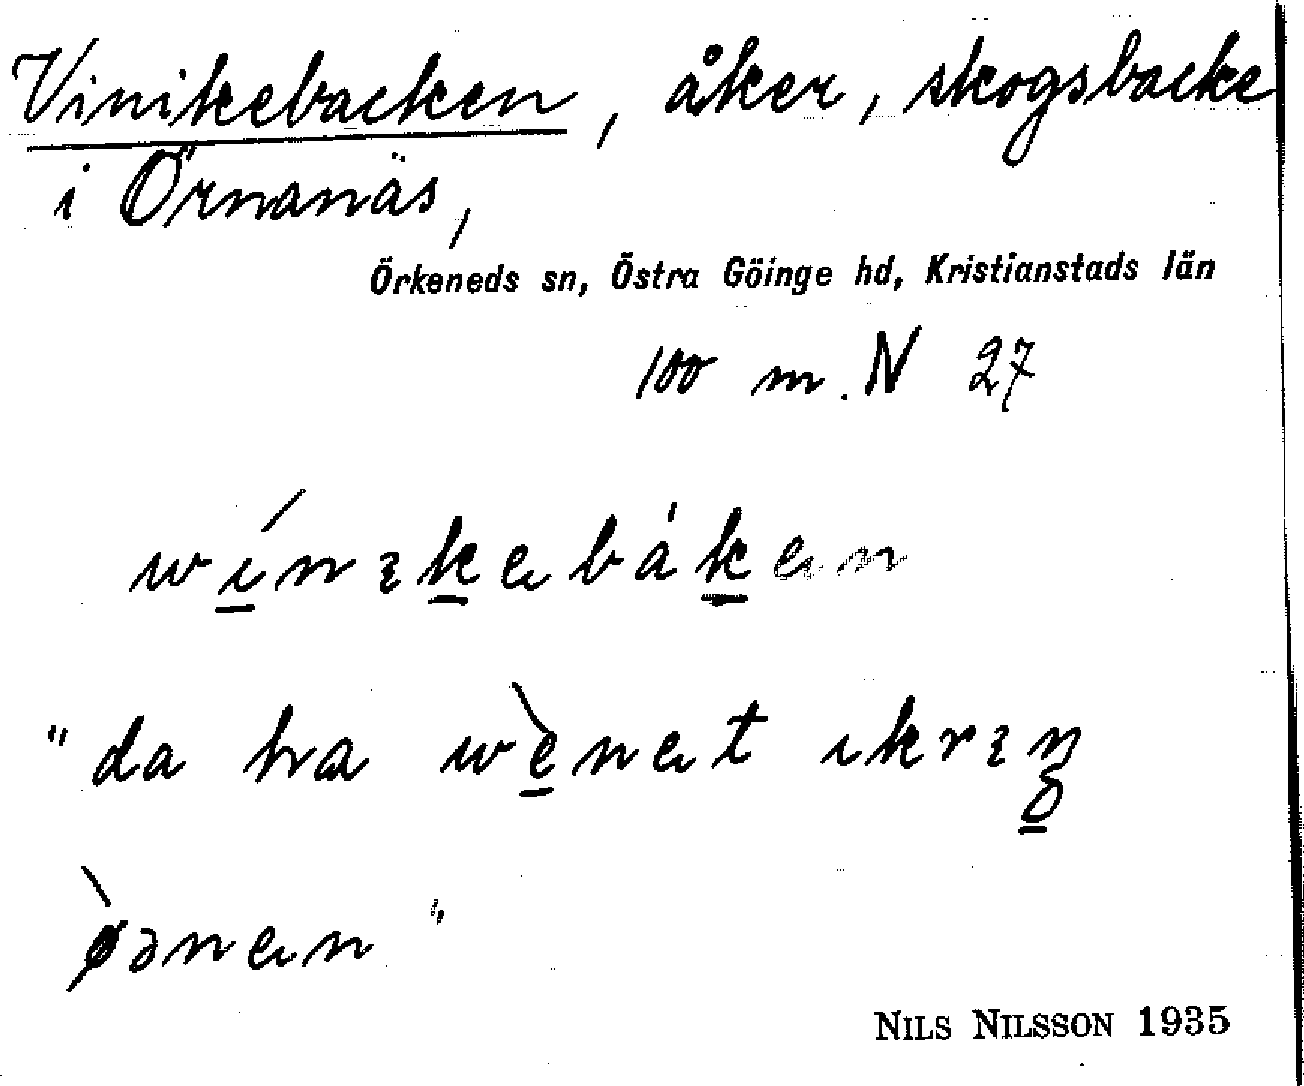 Vinikebacken, åker, skogsbacke
i Örnanäs,
Örkeneds sn, Östra Göinge hd, Kristianstads län
100 m. N 27
wínıkebáken
"da ha wènet ıkrıŋ
øənen"
NILS NILSSON 1935